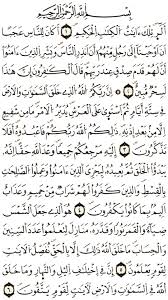 بِسْمِ اللَّهِ الرَّحْمَٰنِ الرَّحِيمِ
الٓر تِلْكَ ءَايَٰتُ الْكِتَٰبِ الْحَكِيمِ ١ أَكَانَ لِلنَّاسِ عَجَبًا
أَنْ أَوْحَيْنَآ إِلَىٰ رَجُلٍ مِّنْهُمْ أَنْ أَنذِرِ النَّاسَ وَبَشِّرِ الَّذِينَ ءَامَنُوٓا
أَنَّ لَهُمْ قَدَمَ صِدْقٍ عِندَ رَبِّهِمْ قَالَ الْكَٰفِرُونَ إِنَّ هَٰذَا
لَسَٰحِرٌ مُّبِينٌ ٢ إِنَّ رَبَّكُمُ اللَّهُ الَّذِي خَلَقَ السَّمَٰوَٰتِ وَالْأَرْضَ
فِي سِتَّةِ أَيَّامٍ ثُمَّ اسْتَوَىٰ عَلَى الْعَرْشِ يُدَبِّرُ الْأَمْرَ مَا مِن شَفِيعٍ
إِلَّا مِنۢ بَعْدِ إِذْنِهِ ذَٰلِكُمُ اللَّهُ رَبُّكُمْ فَاعْبُدُوهُ أَفَلَا
تَذَكَّرُونَ ٣ إِلَيْهِ مَرْجِعُكُمْ جَمِيعًا وَعْدَ اللَّهِ حَقًّا إِنَّهُ
يَبْدَؤُا الْخَلْقَ ثُمَّ يُعِيدُهُ لِيَجْزِيَ الَّذِينَ ءَامَنُوا وَعَمِلُوا الصَّٰلِحَٰتِ
بِالْقِسْطِ وَالَّذِينَ كَفَرُوا لَهُمْ شَرَابٌ مِّنْ حَمِيمٍ وَعَذَابٌ
أَلِيمٌۢ بِمَا كَانُوا يَكْفُرُونَ ٤ هُوَ الَّذِي جَعَلَ الشَّمْسَ
ضِيَآءً وَالْقَمَرَ نُورًا وَقَدَّرَهُ مَنَازِلَ لِتَعْلَمُوا عَدَدَ السِّنِينَ
وَالْحِسَابَ مَا خَلَقَ اللَّهُ ذَٰلِكَ إِلَّا بِالْحَقِّ يُفَصِّلُ الْءَايَٰتِ
لِقَوْمٍ يَعْلَمُونَ ٥ إِنَّ فِي اخْتِلَٰفِ الَّيْلِ وَالنَّهَارِ وَمَا خَلَقَ
اللَّهُ فِي السَّمَٰوَٰتِ وَالْأَرْضِ لَءَايَٰتٍ لِّقَوْمٍ يَتَّقُونَ ٦